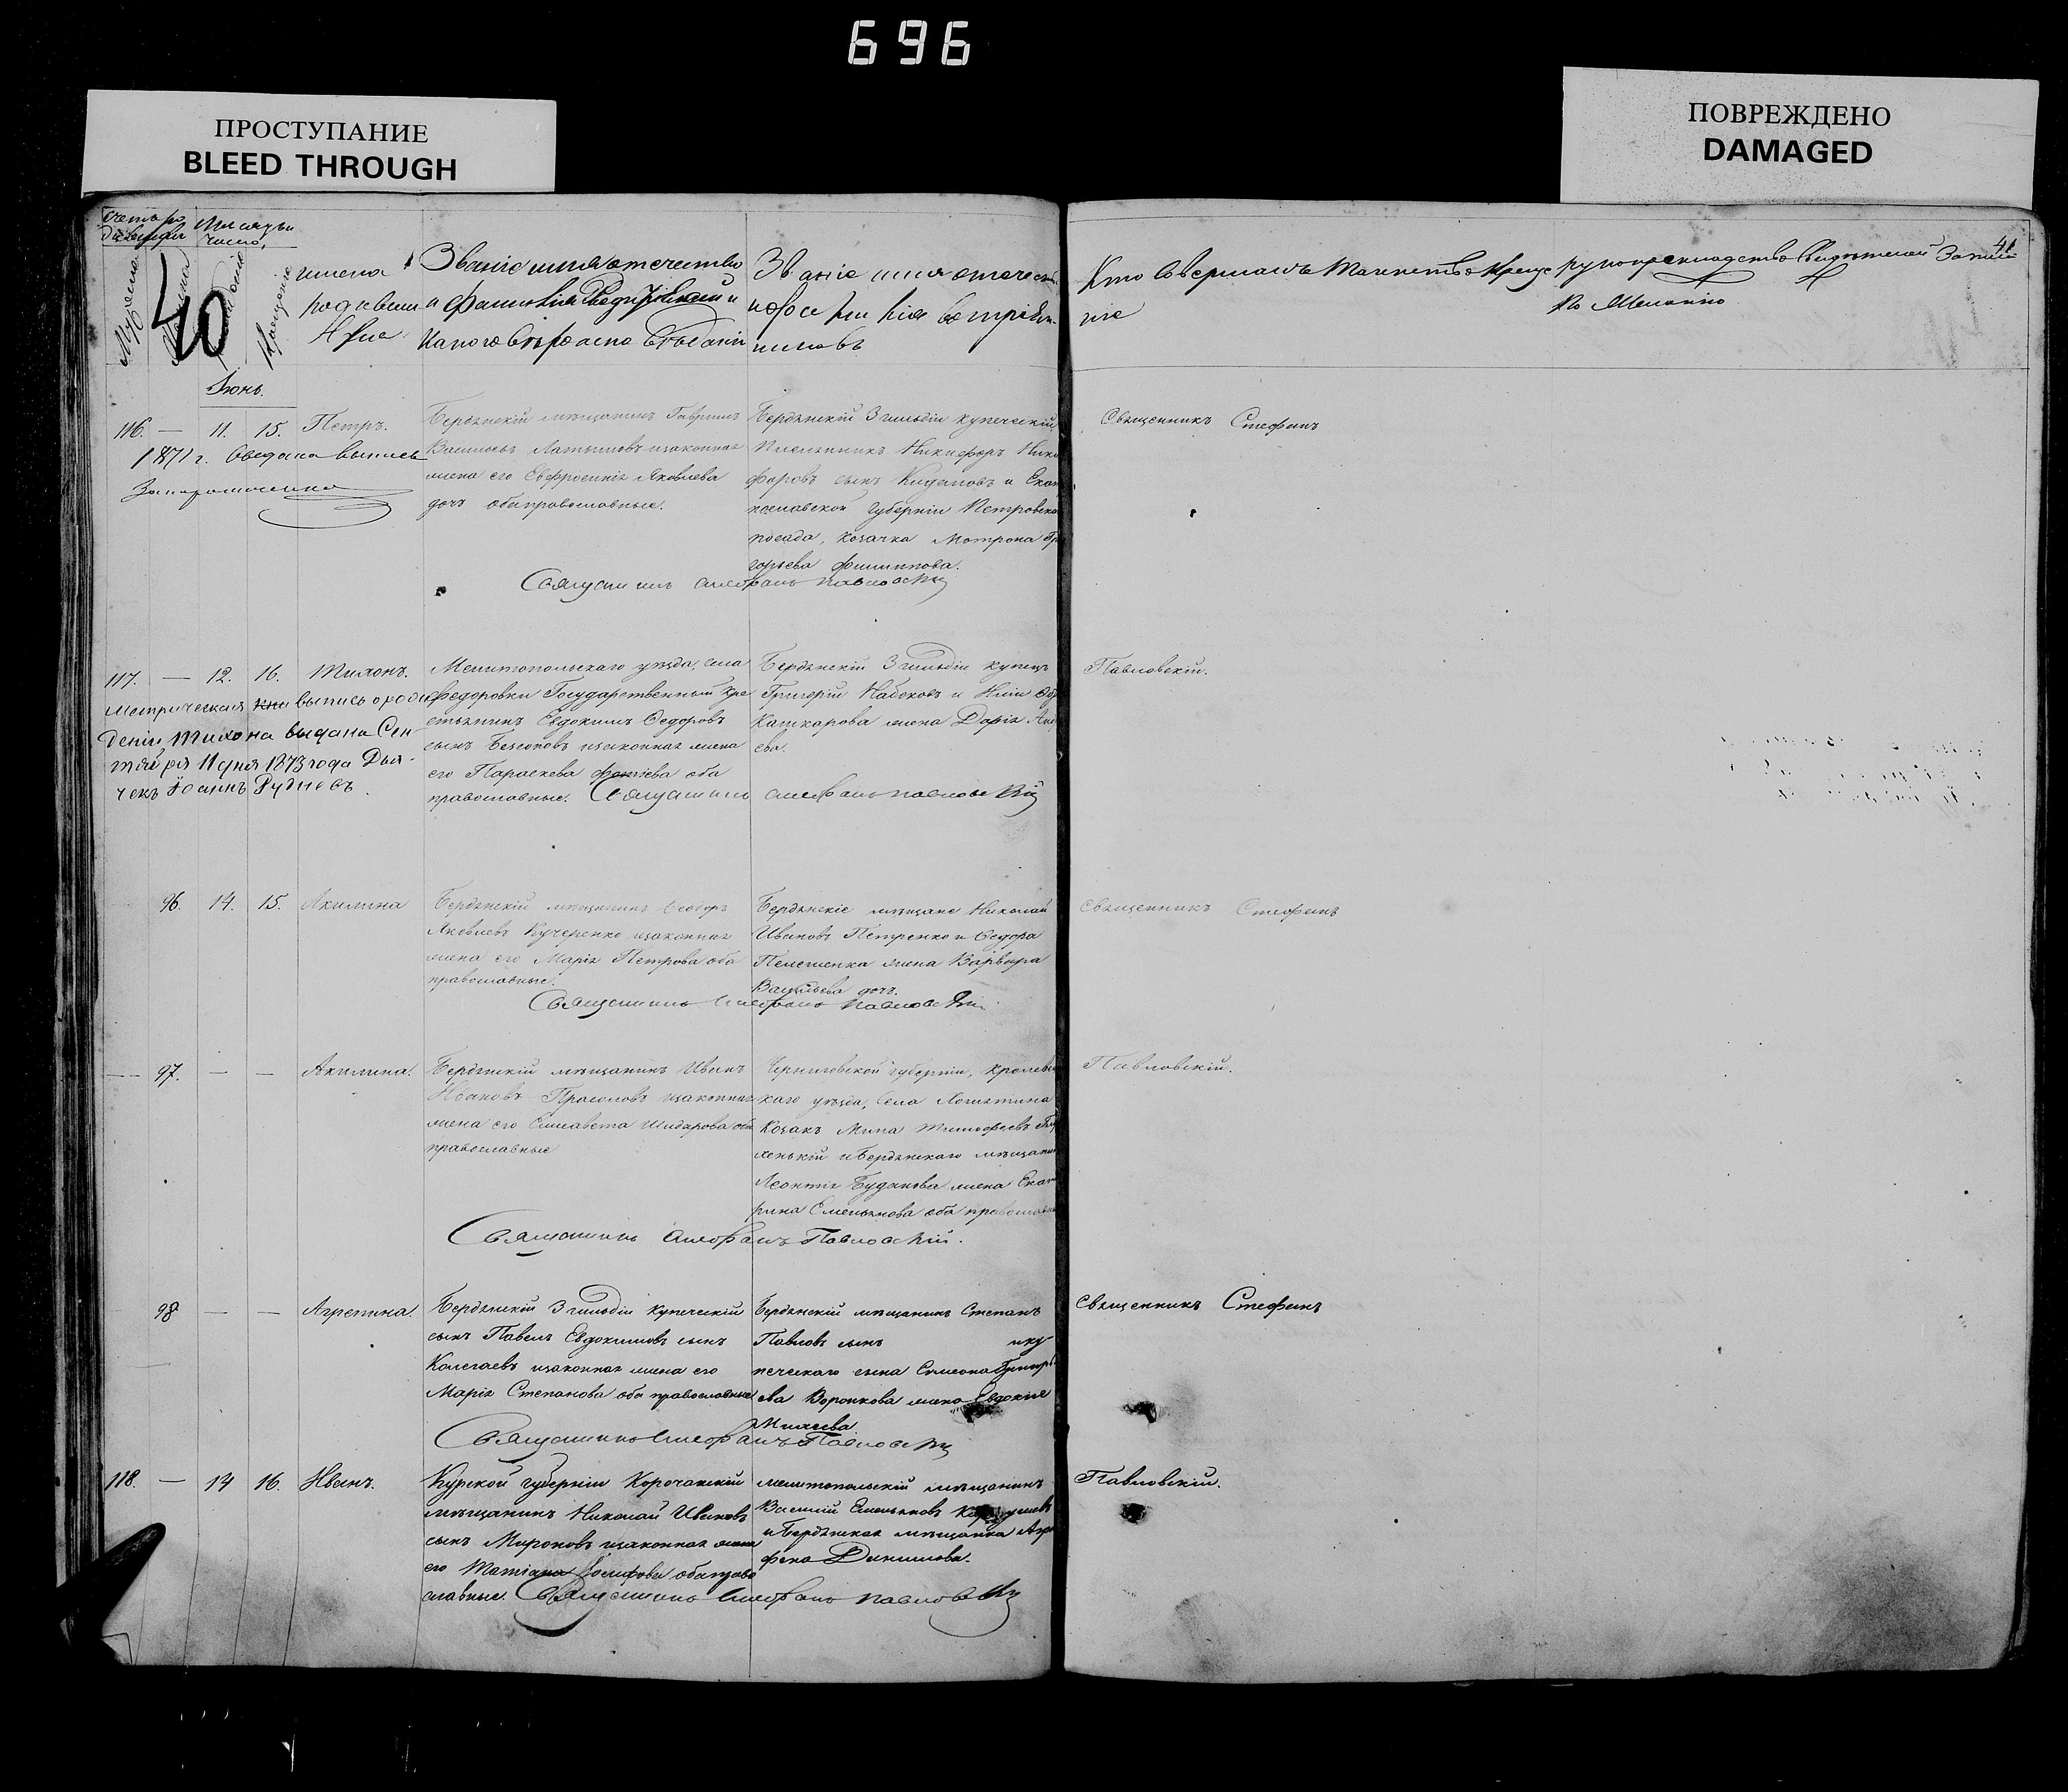 696
ПРОСТУПАНИЕ
BLEED THROUGH
ПОВРЕЖДЕНО
DAMAGED
41
Мѣсяцъ и
число,
имена
родивши
Званіе имя отечество
и фамилія
какого вѣроисповѣданія
Званіе имя отечест.
и фамилія воспріем-
никовъ
Кто совершалъ таинство Креще
ніе
рукоприкладство свидѣтелей записи
по желанію
Іюнь.
116. — 11. 15. Петръ.
1871 г. выпись
Бердянскій мѣщанинъ Гавріилъ
Васильевъ Латышовъ изаконная
жена его Евфросинія Яковлева
дочь оба православные.
Бердянскій 3 гильдіи купеческій
племянникъ Никифоръ Ники
форовъ сынъ Кидаловъ и Екат
нославской губерніи Петровско
посада, козачка Мотрона Гри
горьева Филиппова.
Священникъ Стефанъ Павловскій
Священникъ Стефанъ
117. — 12. 16. Тихонъ.
Метрическая выпись о рож
деніи Тихона выдана Сен
тября 11 дня 1873 года Дья-
чекъ Іоаннъ Рудневъ.
Мелитопольскаго уѣзда, села
Федоровки Государственный кре
стьянинъ Евдокимъ Ѳедоровъ
сынъ изаконная жена
его Параскева Фотіева оба
православные.
Бердянскій 3 гильдіи купецъ
Григорій Набоковъ и
Кашкарова жена Дарія
ева.
Священникъ Стефанъ Павловскій
Павловскій.
96. 14. 15. Акилина
Бердянскій мѣщанинъ Ѳеодоръ
Яковлевъ Кучеренко изаконная
жена его Марія Петрова оба
православные.
Бердянскіе мѣщане Николай
Ивановъ Петренко и Ѳедора
Пелешенка жена Варвара
Васильева дочь.
Священникъ Стефанъ Павловскій
Священникъ Стефанъ
97. — — Акилина.
Бердянскій мѣщанинъ Иванъ
Ивановъ Прасоловъ изаконная
жена его Елисавета оба
православные
Черниговской губерніи, Кролеве
каго уѣзда, села
Козакъ Мина Тимофеевъ
ленькій и Бердянскаго мѣщанин
Леонтія Буданова жена Екате
рина Емельянова оба православн
Священникъ Стефанъ Павловскій.
Павловскій.
98 — — Агрепина.
Бердянскій 3 гильдіи купеческій
сынъ Павелъ Евдокимовъ сынъ
Колегаевъ изаконная жена его
Марія Степанова оба православные
Бердянскій мѣщанинъ Степанъ
Павловъ сынъ и ку
печескаго сына Симеона Григорь
ева Воронкова жена Евдокія
Михеева
Священникъ Стефанъ Павловскій
Священникъ Стефанъ
118. — 14 16. Иванъ.
Курской губерніи Корочанскій
мѣщанинъ Николай Ивановъ
сынъ Мироновъ изаконная жена
его Татіана Іосифова оба право
славные.
мелитопольскій мѣщанинъ
Василій Емельяновъ
и Бердянская мѣщанка Агри
фена Данилова.
Священникъ Стефанъ Павловскій
Павловскій.